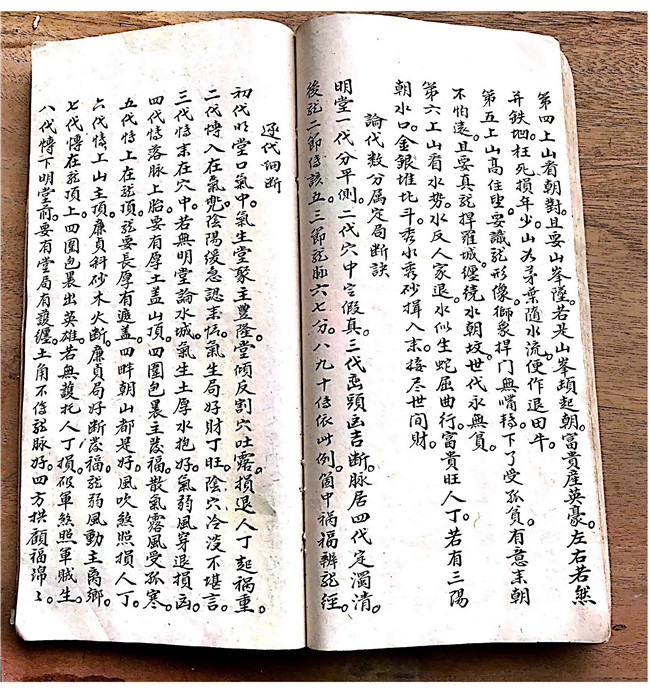 第四上山看朝對。且要山峯隆。若是山峯頭起朝。富貴產英豪。左右若然
并鉄。枉死損年少。山為茅葉隨水流。便作退田牛。
第五上山高住。要識龍形像。獅象捍門無嘴。下了受孤負。有意来朝
不怕遠。且要真龍捍羅城。纏绕水朝坟。世代永無負。
第六上山看水势。水反人家退。水似生蛇屈曲行。富貴旺人丁。若有三陽
朝水口。金銀堆比斗。秀水秀砂揖入来。接尽世间財。
論代数分属定局断訣
明堂一代分平側。二代穴中定假真。三代巒頭凶吉断。脉居四代定濁清。
後龍二節伝該五。三節龍脉六七分。八九十伝依此例。箇中禍福辨龍经。
逐代细断
初代明堂口氣中。氣生堂聚主豊隆。堂傾反割穴吐露。損退人丁起禍重。
二代愽入在氣兜。陰陽缓急認来。氣生局好財丁旺。陰穴冷没不堪言。
三代愽来在穴中。若無明堂論水城。氣生土厚水抱好。氣弱風穿退損凶。
四代愽落脉上胎。要有厚土盖山頂。四圍包裹主發福。散氣露風受孤寒。
五代愽上在龍頂。龍要長厚有遮盖。四畔朝山都是好。風吹煞照損人丁。
六代愽工山主頂。廉貞科砂木火断。廉貞局好断發福。龍弱風動主离鄉。
七代愽在龍頂上。四圍包裹出英雄。若無護托人丁損。破軍煞照軍賊生。
八代愽下明堂前。要有堂局有護纏。土角不伝龍脉好。四方拱顧福綿〻。